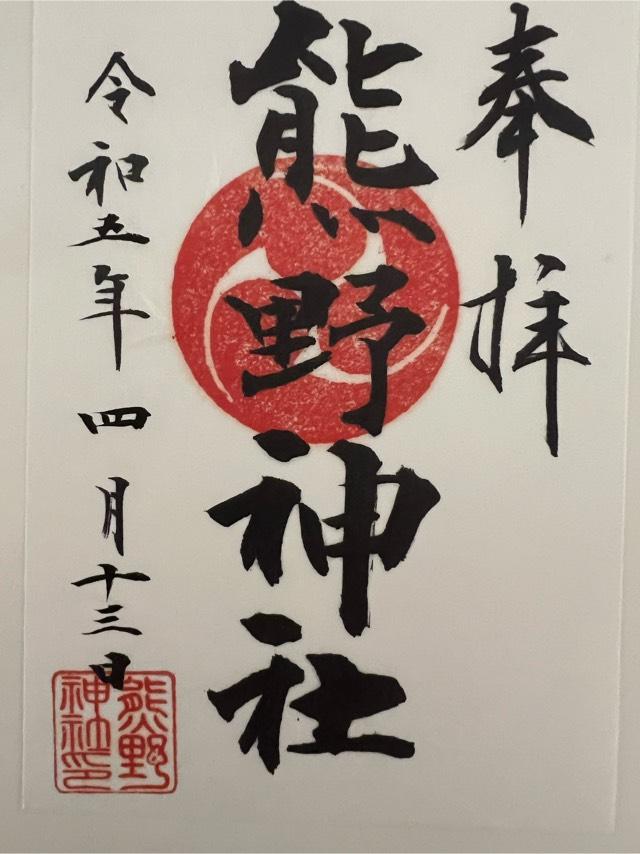 奉拝
熊野神社
令和五年四月十三日
熊野
神社印